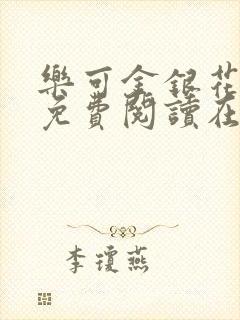 樂可金銀花
免費閱讀在
李瓊燕